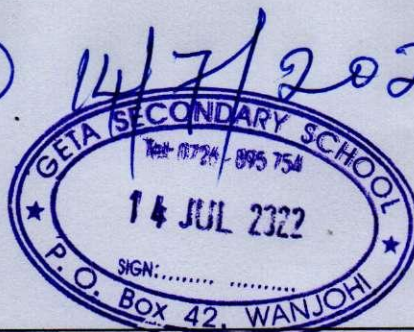 14/7/202
GETA SECONDARY SCHOOL
Tel: 0724-895 754
14 JUL 2022
SIGN:....... ..........
P.O. Box 42, WANJOHI